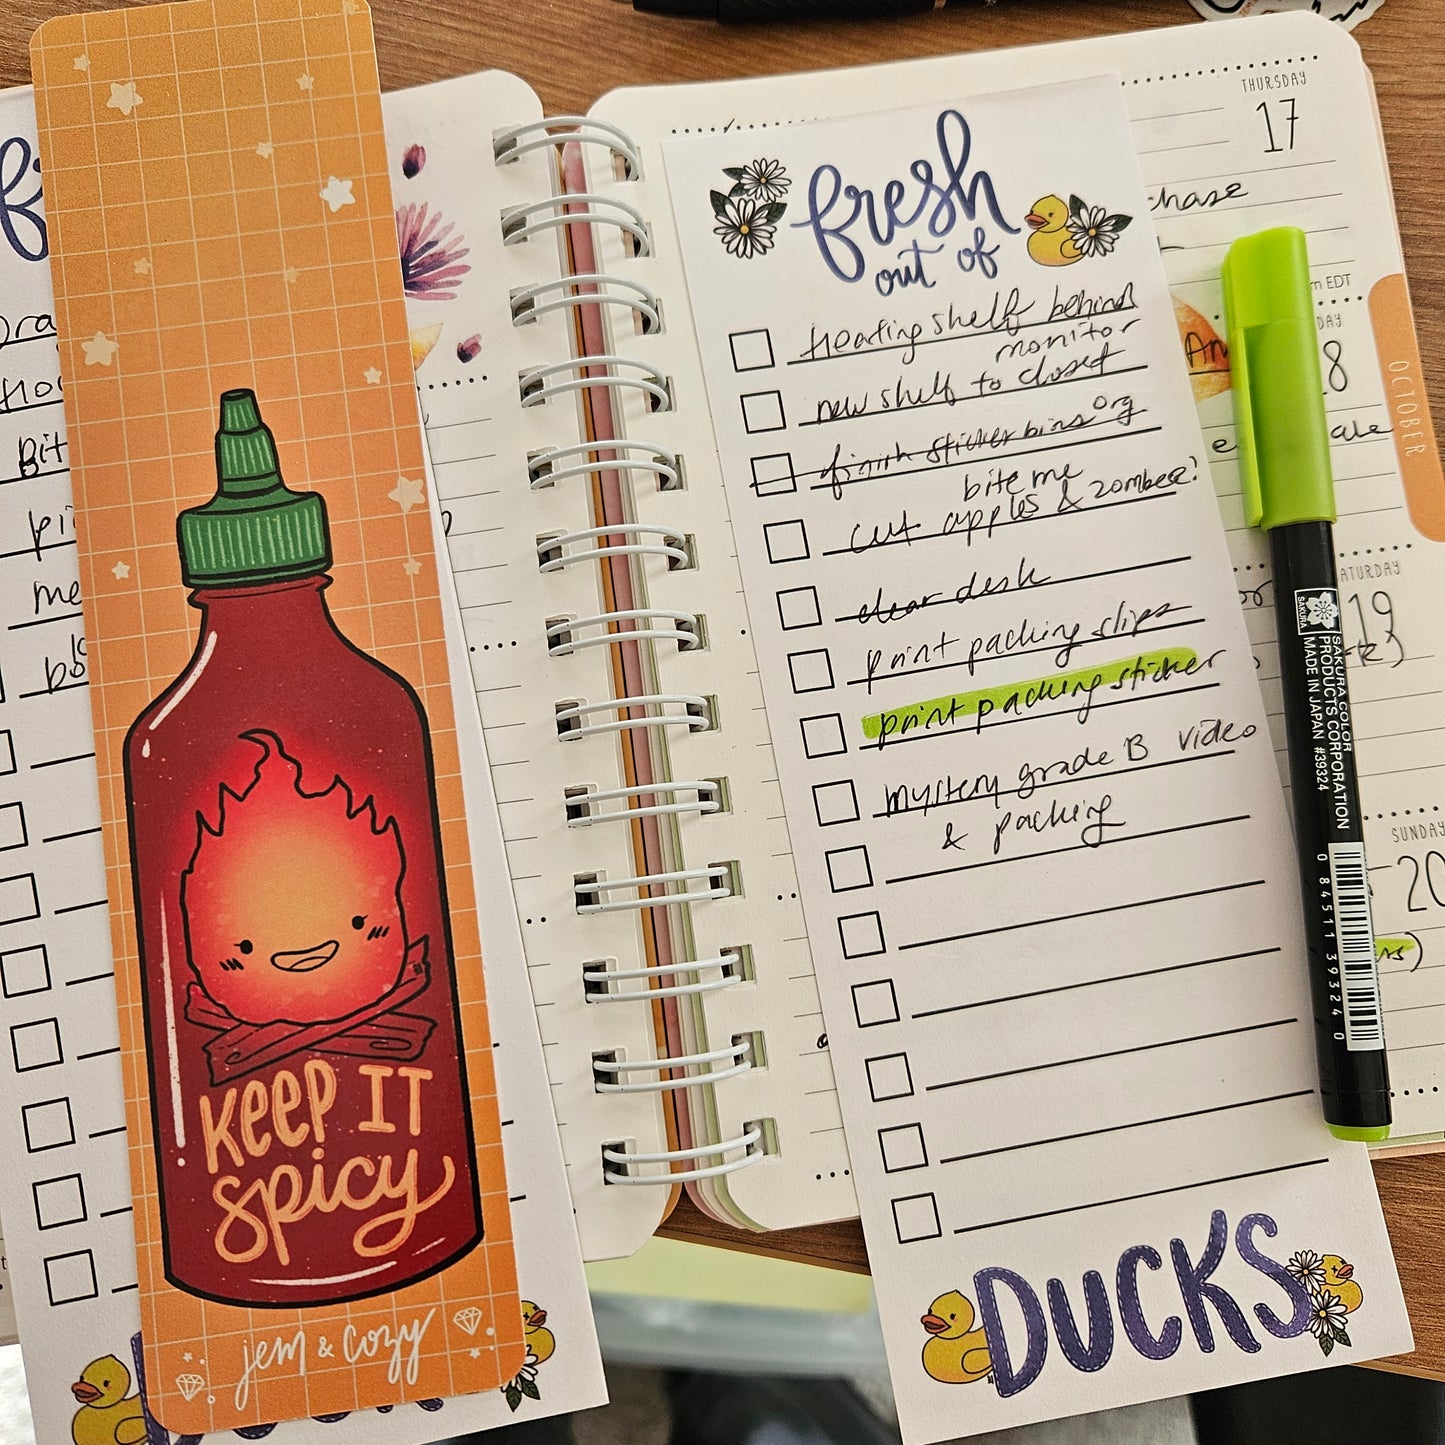 KEEP IT
spicy
jem & cozy
bit
me
fresh
out of
heating shelf behind
monitor
new shelf to closet
finish sticker bins org
bite me
cut apples & zombees?
clear desk
print packing slips
print packing sticker
mystery grade B video
& packing
DUCKS
THURSDAY
17
chase
EDT
DAY
8
OCTOBER
ale
ATURDAY
19
SUNDAY
20
SAKURA
SAKURA COLOR
PRODUCTS CORPORATION
MADE IN JAPAN #39324
0 84511 39324 0